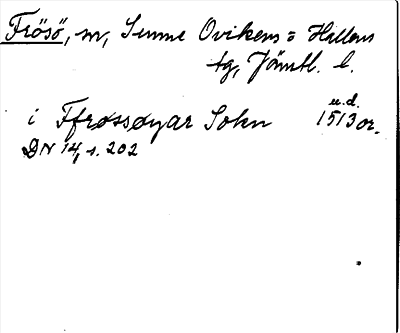 Frösö, sn, Sunne Ovikens o Hallens
tg, Jämtl. l.
i Ffrøssøyar Sokn 1513 or. u.d.
DN 14, s. 202